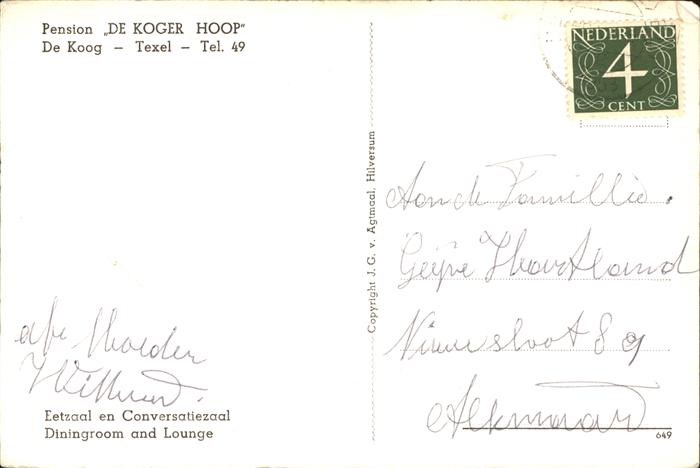 Pension „DE KOGER HOOP"
De Koog – Texel – Tel. 49
NEDERLAND
4
CENT
Copyright J. G. v. Agtmaal, Hilversum
Aan de Famillie.
Hartland
Nieuwesloot 89
Alkmaar
afz Moeder
Eetzaal en Conversatiezaal
Diningroom and Lounge
649